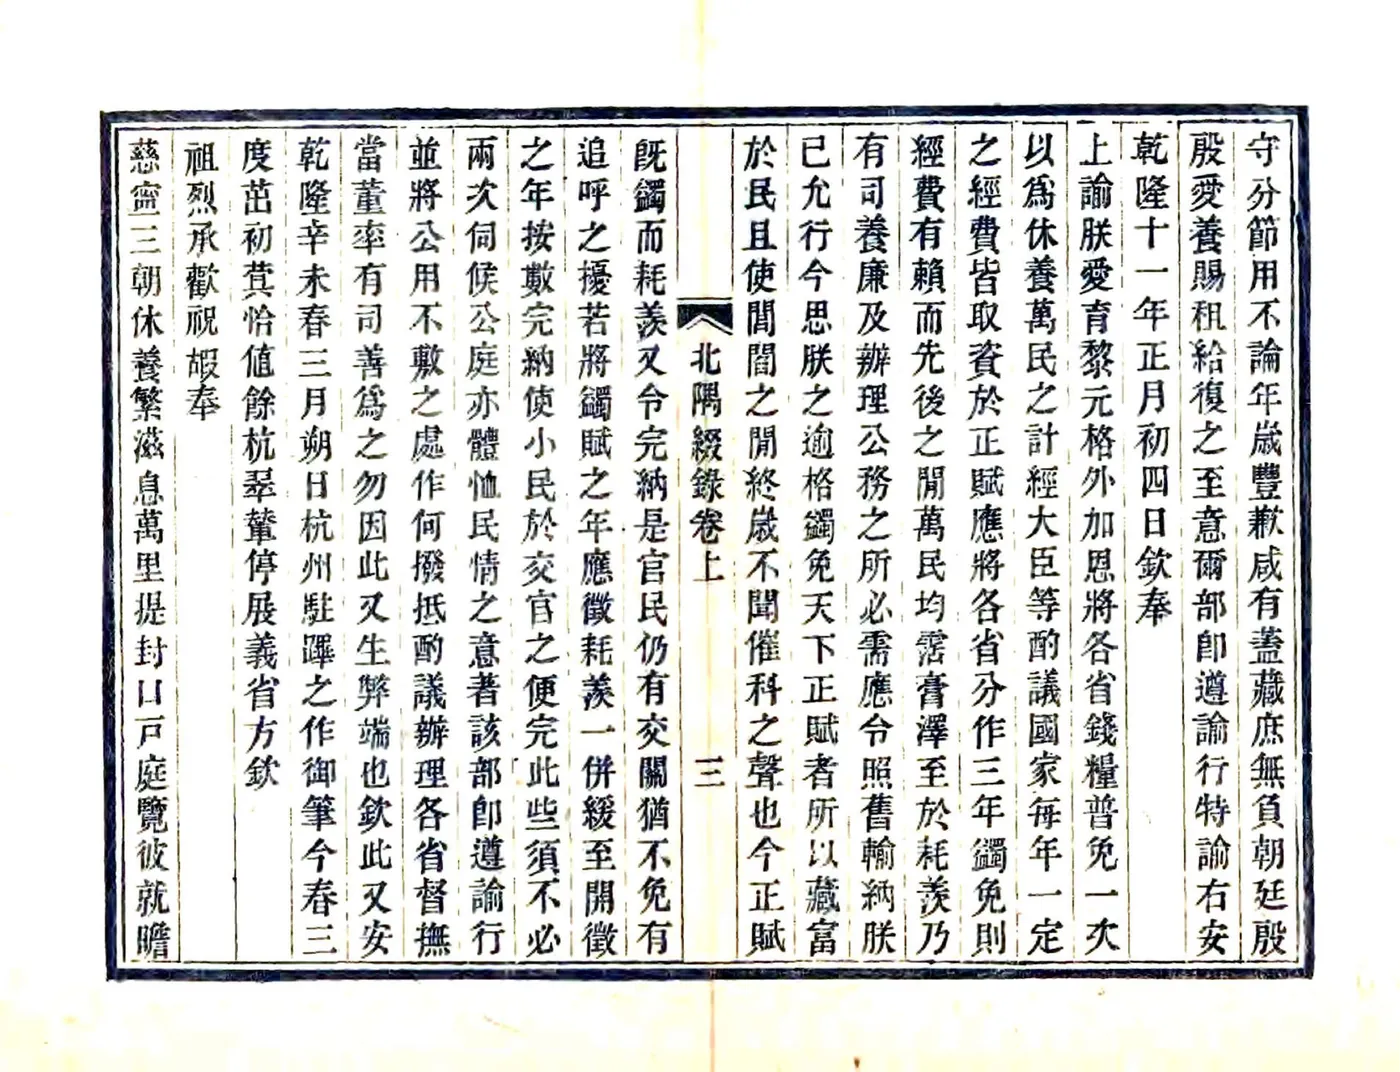 守分節用不論年歲豐歉咸有蓋藏庶無負朝廷殷
殷愛養賜租給復之至意爾部卽遵諭行特諭右安
乾隆十一年正月初四日欽奉
上諭朕愛育黎元格外加恩將各省錢糧普免一次
以爲休養萬民之計經大臣等酌議國家每年一定
之經費皆取資於正賦應將各省分作三年蠲免則
經費有賴而先後之閒萬民均霑膏澤至於耗羨乃
有司養廉及辦理公務之所必需應令照舊輸納朕
已允行今思朕之逾格蠲免天下正賦者所以藏富
於民且使閭閻之閒終歲不聞催科之聲也今正賦
北隅綴錄卷上
三
旣蠲而耗羨又令完納是官民仍有交關猶不免有
追呼之擾若將蠲賦之年應徵耗羨一併緩至開徵
之年按數完納使小民於交官之便完此些須不必
兩次伺候公庭亦體恤民情之意著該部卽遵諭行
並將公用不敷之處作何撥抵酌議辦理各省督撫
當董率有司善爲之勿因此又生弊端也欽此又安
乾隆辛未春三月朔日杭州駐蹕之作御筆今春三
度茁初蓂恰值餘杭翠輦停展義省方欽
祖烈承歡祝嘏奉
慈寧三朝休養繁滋息萬里提封口戸庭覽彼就瞻